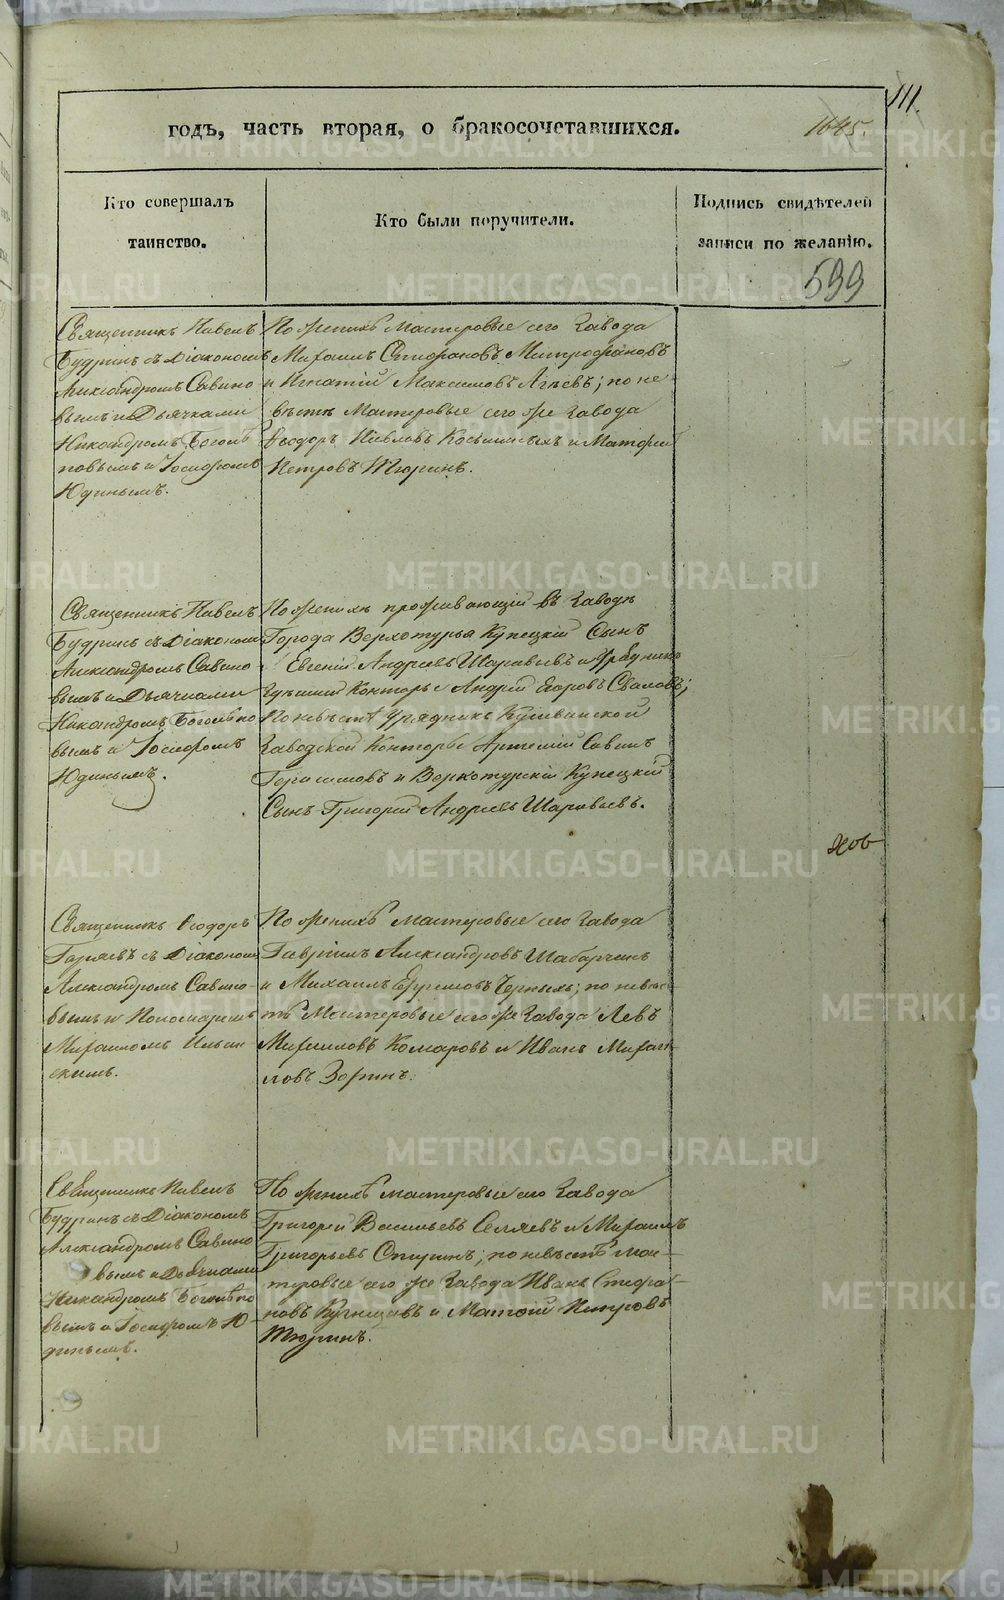 111.
годъ, часть вторая, о бракосочетавшихся.
1645.
Кто совершалъ
таинство.
Кто были поручители.
Подпись свидѣтелей
записи по желанію.
599
Священникъ Павелъ
Будринъ съ Діакономъ
Александромъ Савино
вымъ и Дьячками
Никандромъ Боголѣ
повымъ и Іосифомъ
Юдинымъ.
По женихѣ Мастеровые сего Завода
Михаилъ Стефановъ Митрофановъ
и Игнатій Максимовъ Агѣевъ; по не-
вѣстѣ Мастеровые сего же Завода
Ѳеодоръ Павловъ Косьминыхъ и Матѳей
Петровъ Тюринъ.
Священникъ Павелъ
Будринъ съ Діакономъ
Александромъ Савино
вымъ и Дьячками
Никандромъ Боголѣпо
вымъ и Іосифомъ
Юдинымъ.
По женихѣ проживающій въ Заводѣ
Города Верхотурья Купецкій Сынъ
Евгеній Андреевъ Шаравьевъ и Урядникъ
здѣшней Конторы Андрей Егоровъ;
По невѣстѣ Урядникъ Кушвинской
Заводской Конторы Артемій Савинъ
Герасимовъ и Верхотурскій Купецкій
Сынъ Григорій Андреевъ Шаравьевъ.
Священникъ Ѳеодоръ
съ Діакономъ
Александромъ Савино-
вымъ и Пономаремъ
Михаиломъ Ильин
скимъ.
По женихѣ мастеровые сего Завода
Гавріилъ Александровъ Шабарчинъ
и Михаилъ Ефремовъ Черныхъ; по невѣс-
тѣ Мастеровые сего же Завода Левъ
Михаиловъ Комаровъ и Иванъ Михаи-
ловъ Зоринъ.
Священникъ Павелъ
Будринъ съ Діакономъ
Александромъ Савино
вымъ и Дьячками
Никандромъ Боголѣпо
вымъ и Іосифомъ Ю
динымъ.
По женихѣ мастеровые сего Завода
Григорій Васильевъ Селяевъ и Михаилъ
Григорьевъ Спиринъ; по невѣстѣ мас-
теровые сего же Завода Иванъ Стефа-
новъ и Матѳей Петровъ
Тюринъ.
METRIKI.GASO-URAL.RU